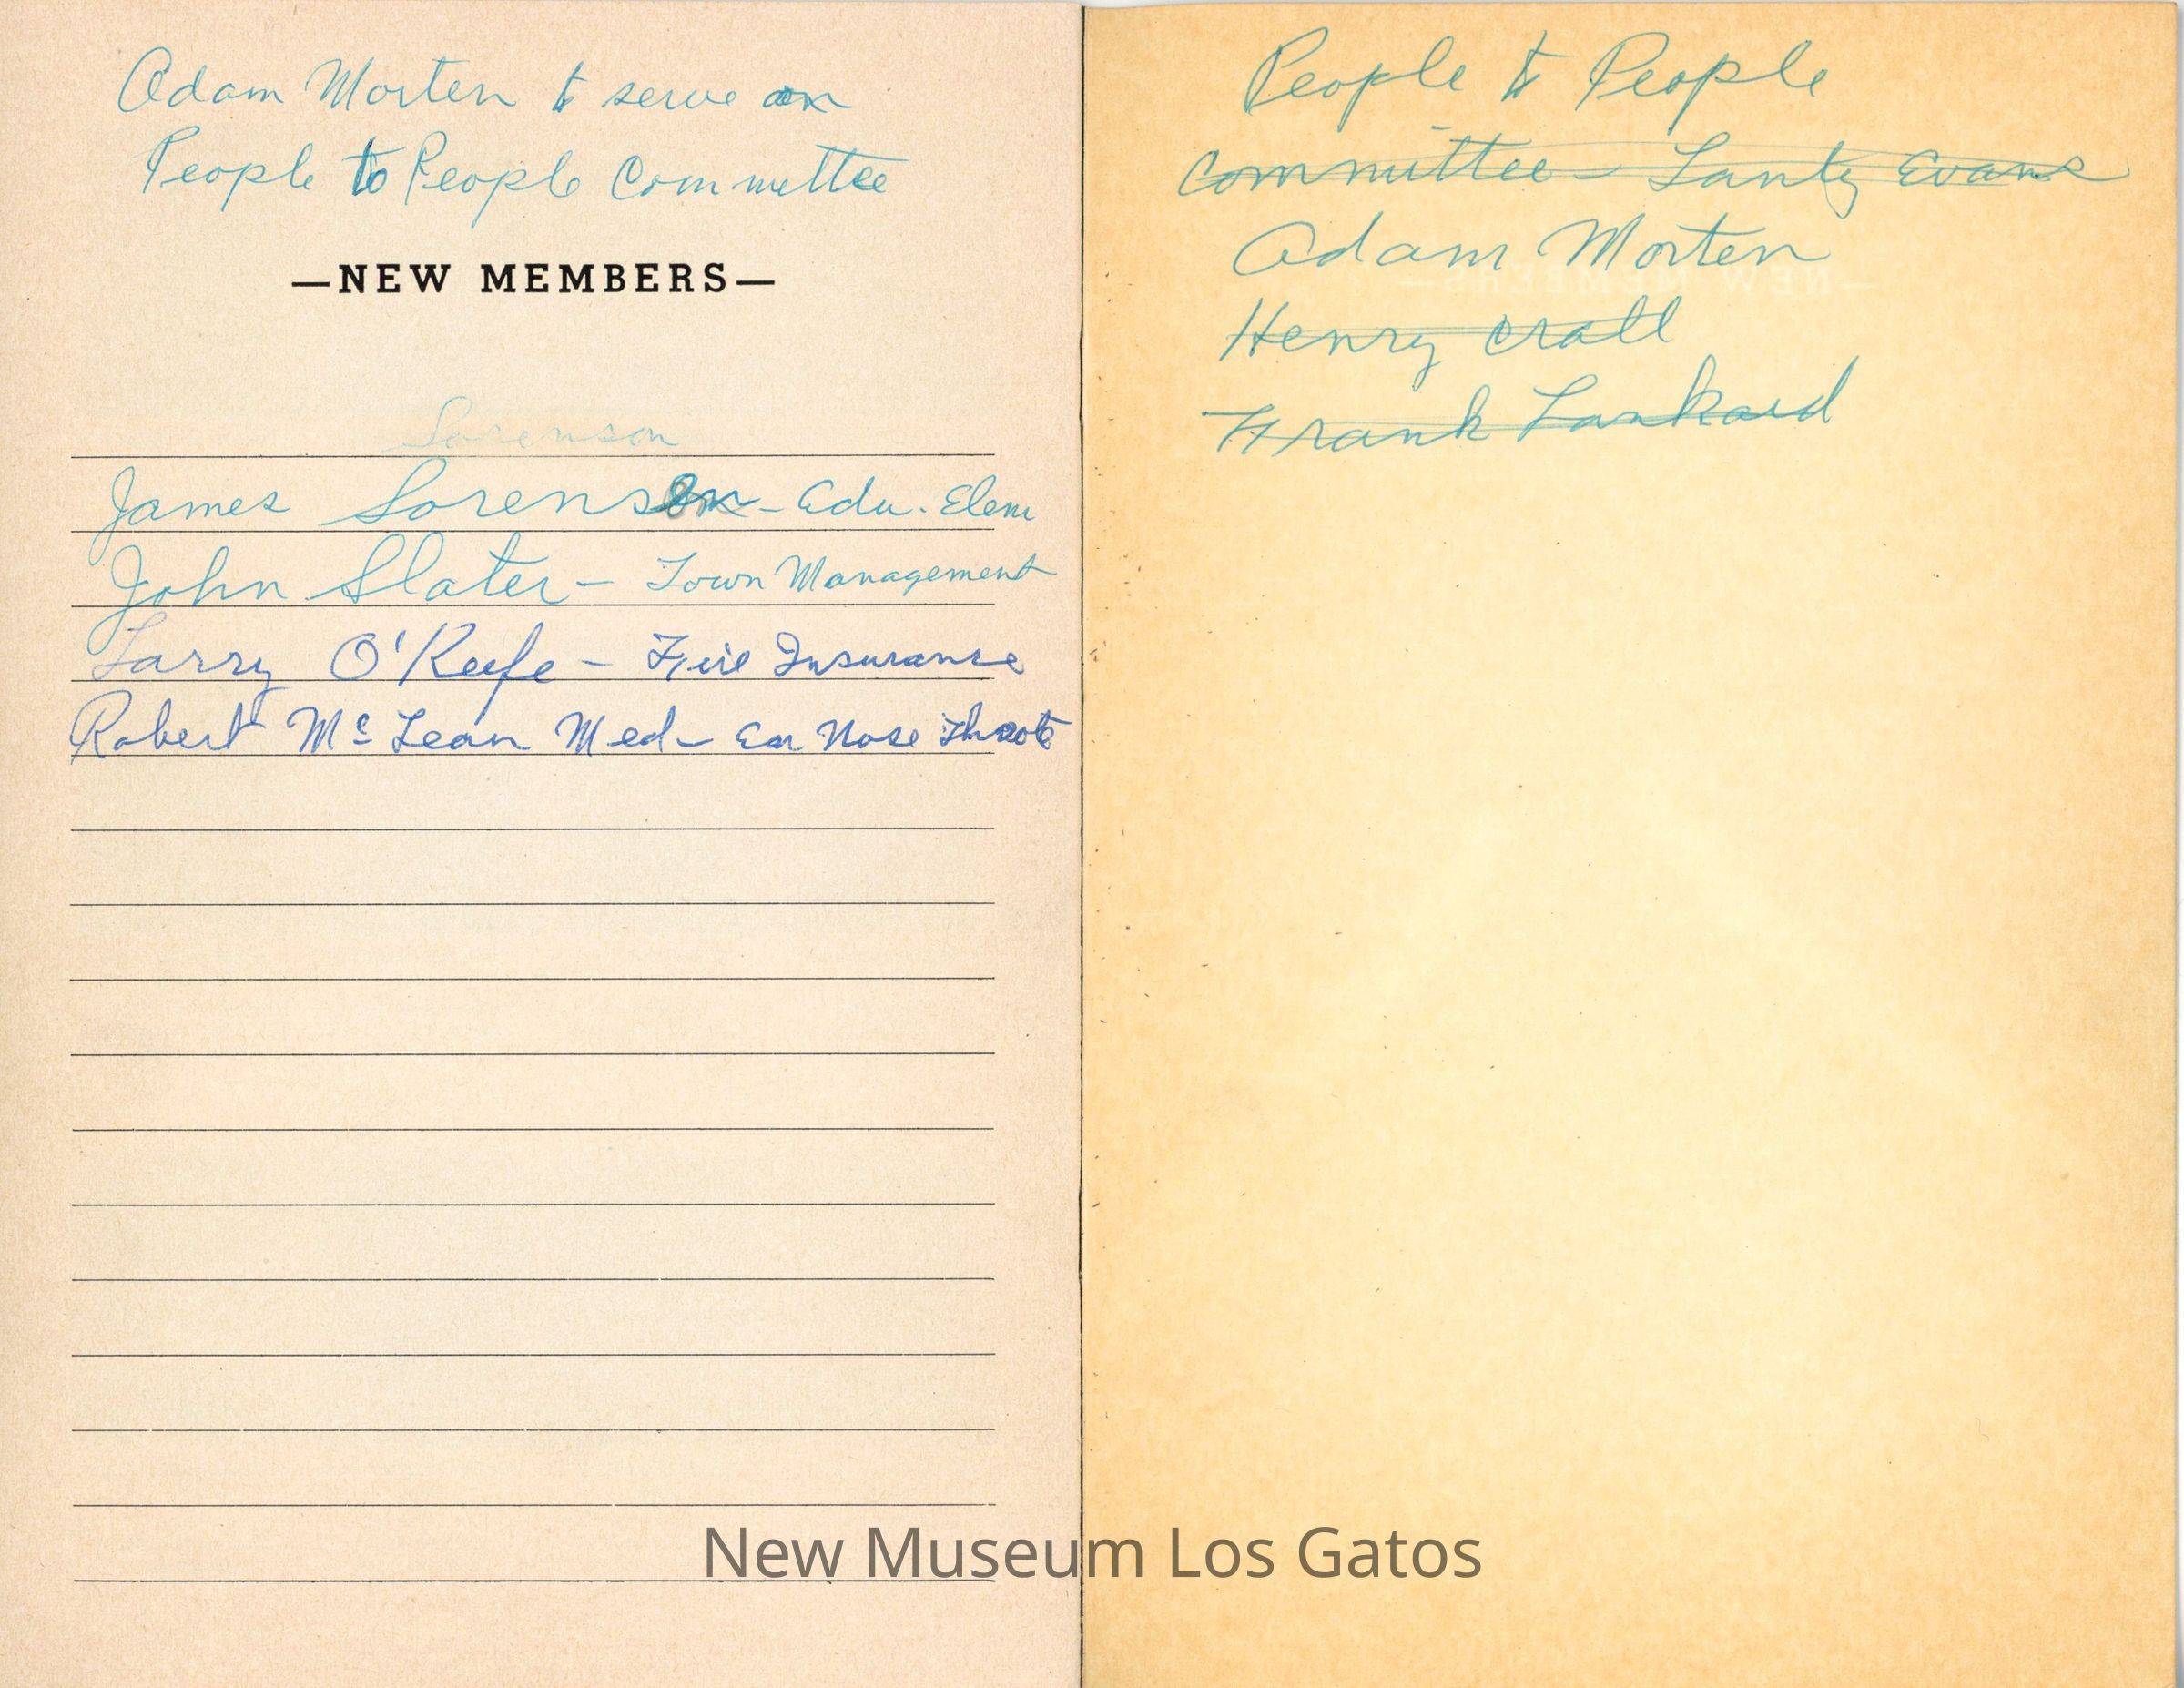 Adam Morten to serve on
People to People Committee
—NEW MEMBERS—
Sorenson
James Sorenson - Edu. Elem
John Slater - Town Management
Larry O'Keefe - Fire Insurance
Robert Mc Lean Med - Ear Nose Throte
People to People
Committee - Lanty Evans
Adam Morten
Henry Crall
Frank Lankard
New Museum Los Gatos